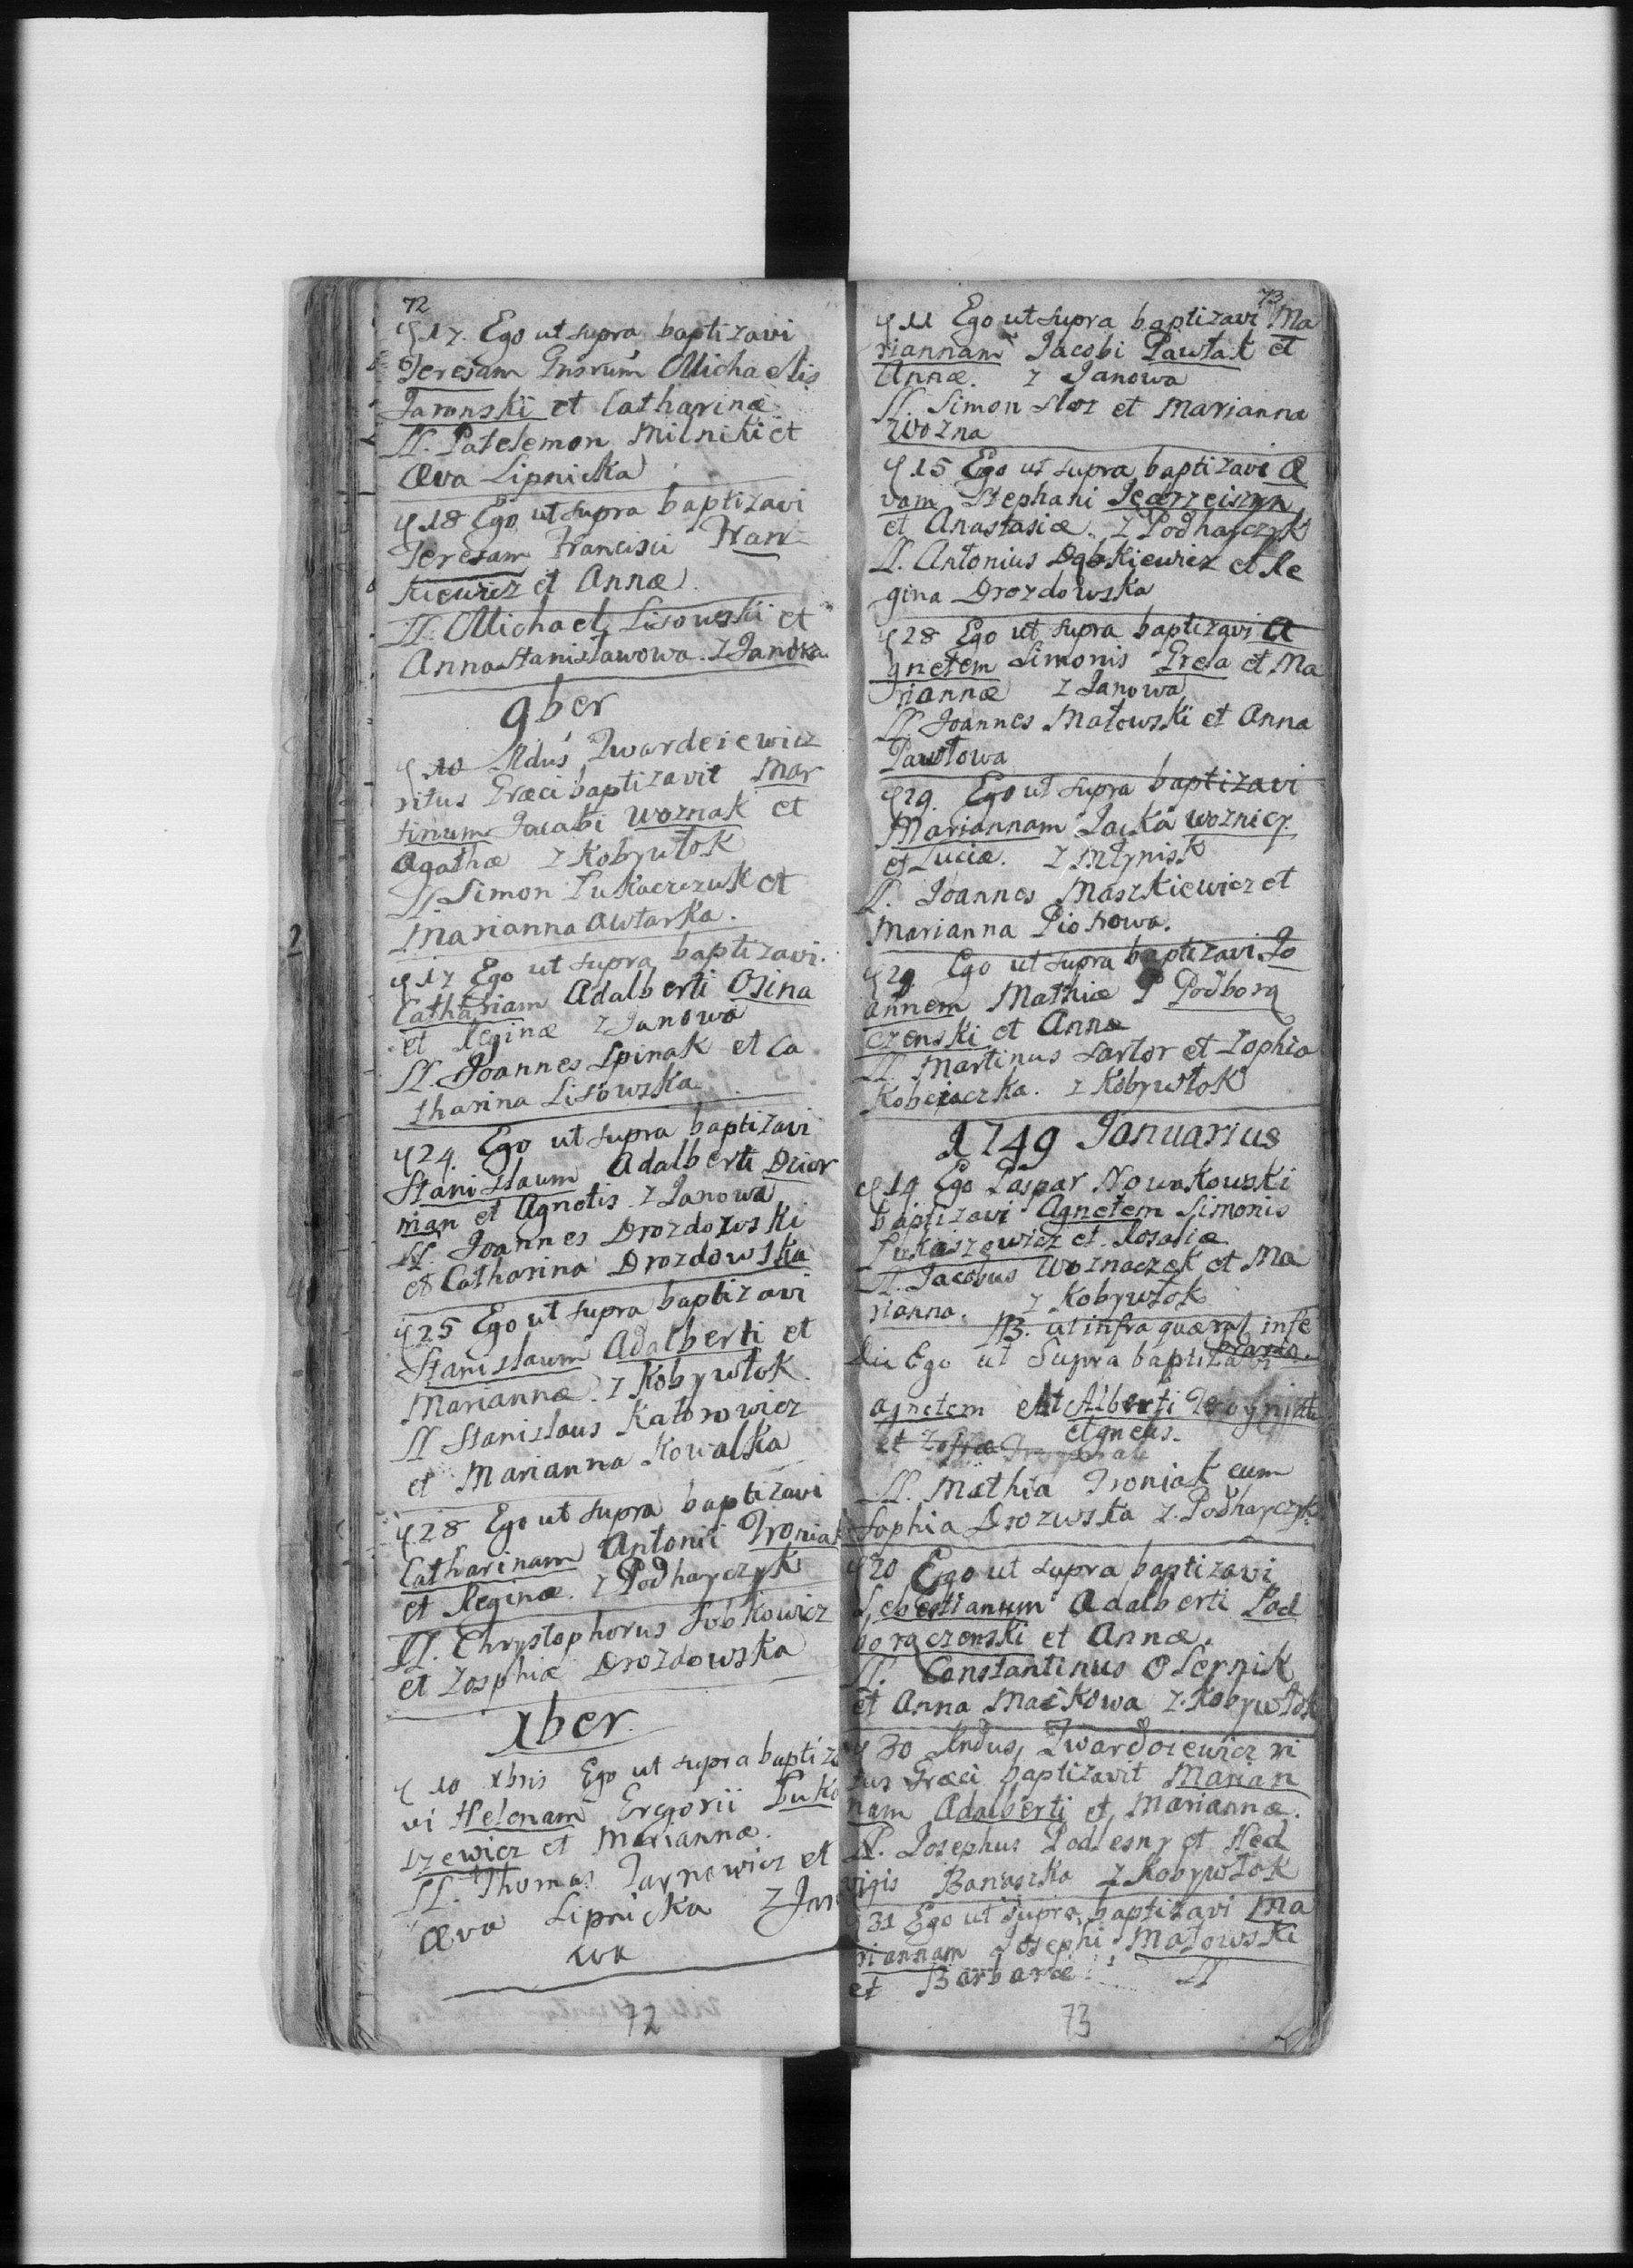 72
17. Ego ut supra baptizavi
Teresam Gnsrum Michaelis
Jaronski et Catharinæ
Milnicki et
Æva Lipnicka
18 Ego ut supra baptizavi
Teresam Francisci Fran
kiewicz et Annæ
Michael Lisowski et
Anna Stanisławowa. z Janowa
9ber
10 Twardziewicz
ritus Græci baptizavit Mar
tinum Jacobi Woznak et
Agathæ z Kobywłok
Simon Łukaczczuk et
Marianna Awtarka.
17 Ego ut supra baptizavi.
Cathariam Adalberti Osina
et Reginæ z Janowa
Joannes Spinak et Ca
tharina Lisowska
24. Ego ut supra baptizavi
Stanislaum Adalberti Dzior
man et Agnetis z Janowa
Joannes Drozdowski
et Catharina Drozdowska
25 Ego ut supra baptizavi
Stanislaum Adalberti et
Mariannæ. z Kobywłok
Stanislaus Katorowicz
et Marianna Kowalka
28 Ego ut supra baptizavi
Catharinam Antonii Troniak
et Reginæ. z Podhayczyk
Chrystophorus Sobkowicz
et Zosphia Drozdowska
Xber.
10 Xbris Ego ut supra baptiza
vi Helenam Gregorii Łuka
szewicz et Mariannæ.
Thomas Jarnowicz et
Æva Lipnicka z Jano
wa
72
73
11 Ego ut supra baptizavi Ma
riannam Jacobi Pawłak et
Annæ. z Janowa
Simon Słoz et Marianna
Wozna
15 Ego ut supra baptizavi Æ
vam Stephani
et Anastasiæ. z Podhayczyk
Antonius Dąbkiewicz et Re
gina Drozdowska
28 Ego ut supra baptizavi A
gnetem Simonis Grela et Ma
riannæ z Janowa
Joannes Małowski et Anna
Pawłowa
29. Ego ut supra baptizavi
Mariannam Jacka Woznicy
et Luciæ. z Młynisk
Joannes Maszkiewicz et
Marianna Piotrowa.
29 Ego ut supra baptizavi Jo
annem Mathiæ P Podborą
czenski et Annæ
Martinus Sartor et Zophia
Kobeiaczka. z Kobywłok
1749 Januarius
19 Ego Gaspar Nowakowski
baptizavi Agnetem Simonis
Łukaszewicz et Rosaliæ
Jacobus Woznaczek et Ma
rianna. z Kobywłok
NB. ut infra quærat infe
Die Ego ut Supra baptizavi
agnetem Alberti
et Zofiæ
Mathia Troniak cum
Sophia Drozwska z. Podhayczyk
20 Ego ut supra baptizavi
Sebestianum Adalberti Pod
borączenski et Annæ.
Constantinus Olernik
et Anna Maćkowa z. Kobywłok
30 Twardziewicz ri
tus Græci baptizavit Marian
nam Adalberti et Mariannæ.
Josephus Podlesny et Hed
vigis Banaszka z Kobywłok
31 Ego ut supra baptizavi Ma
riannam Josephi Małowski
et Barbaræ
73